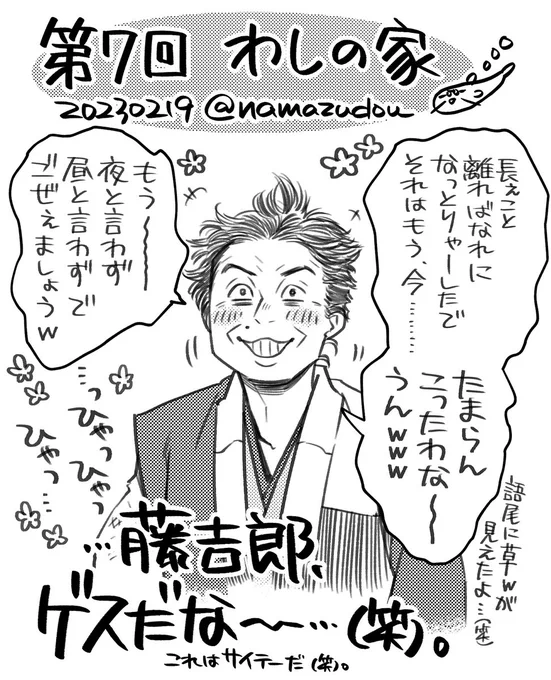 第7回 わしの家
20230219 @namazudou
長ぇこと
離ればなれに
なっとりゃーしたで
それはもう、今………
たまらん
こったわな〜
うんwww
語尾に草wが
見えたよ…(笑)
もう〜
夜と言わず
昼と言わずで
ごぜぇましょうw
…っひゃっひゃっ
ひゃっ…
…藤吉郎、
ゲスだな〜…(笑)。
これはサイテーだ(笑)。